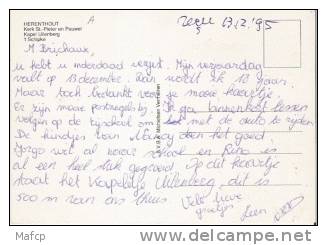 HERENTHOUT
Kerk St.-Pieter en Pauwel
Kapel Uilenberg
't Schipke
A
13.2.'95
M.
u hebt u inderdaad vergist. Mijn verjaardag
valt op 13 december. Dan wordt ik 13 jaar.
Maar toch bedankt voor je mooie kaartje.
Er zijn mooie postzegels bij. Ik ga binnenkort lessen
volgen op de rijschool om met de auto te rijden
De hondjes van Nancy doen het goed
Gorgo wol al naar school en Kino is
al een heel stuk gegroeid. Op dit kaartje
staat het Kapelletje Uilenberg, dit is
500 m van ons thuis
Vele lieve
groetjes
www.delcampe.net
Mafcp